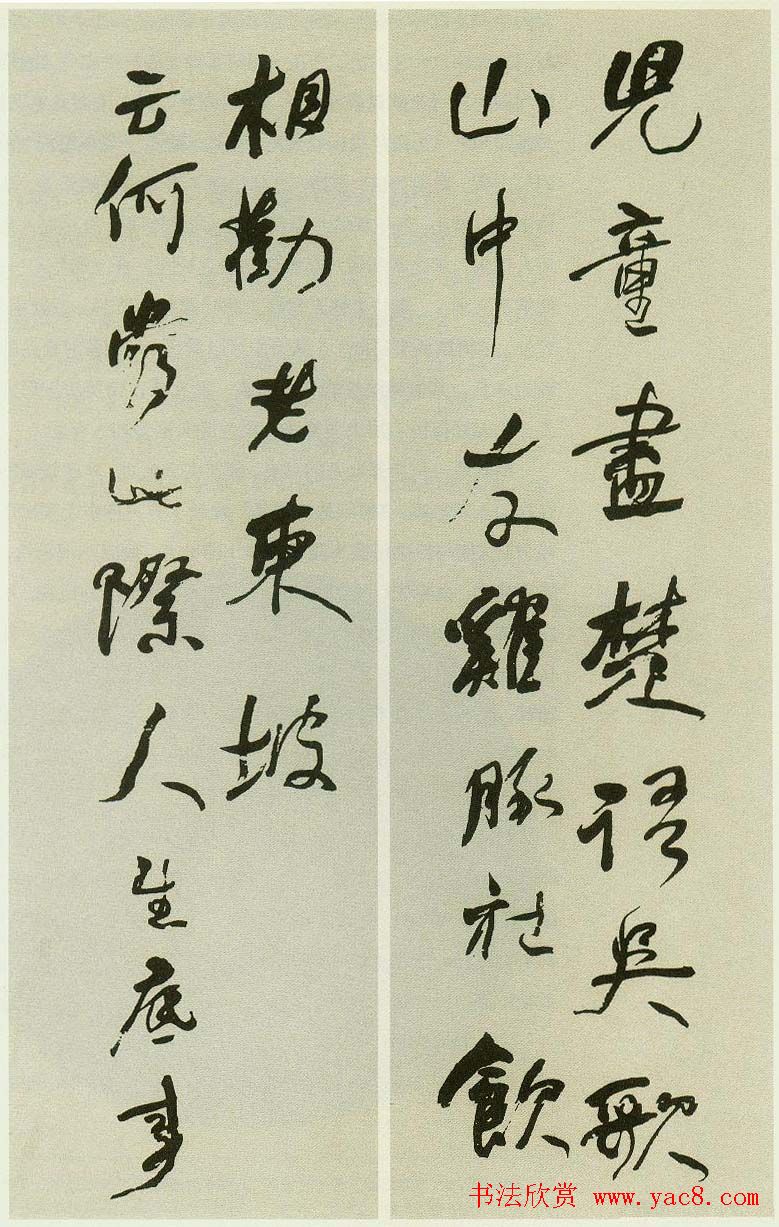 兒童盡楚語吳歌
山中友雞豚社飲
相勸老東坡
云何當此際人生底事
书法欣赏 www.yac8.com